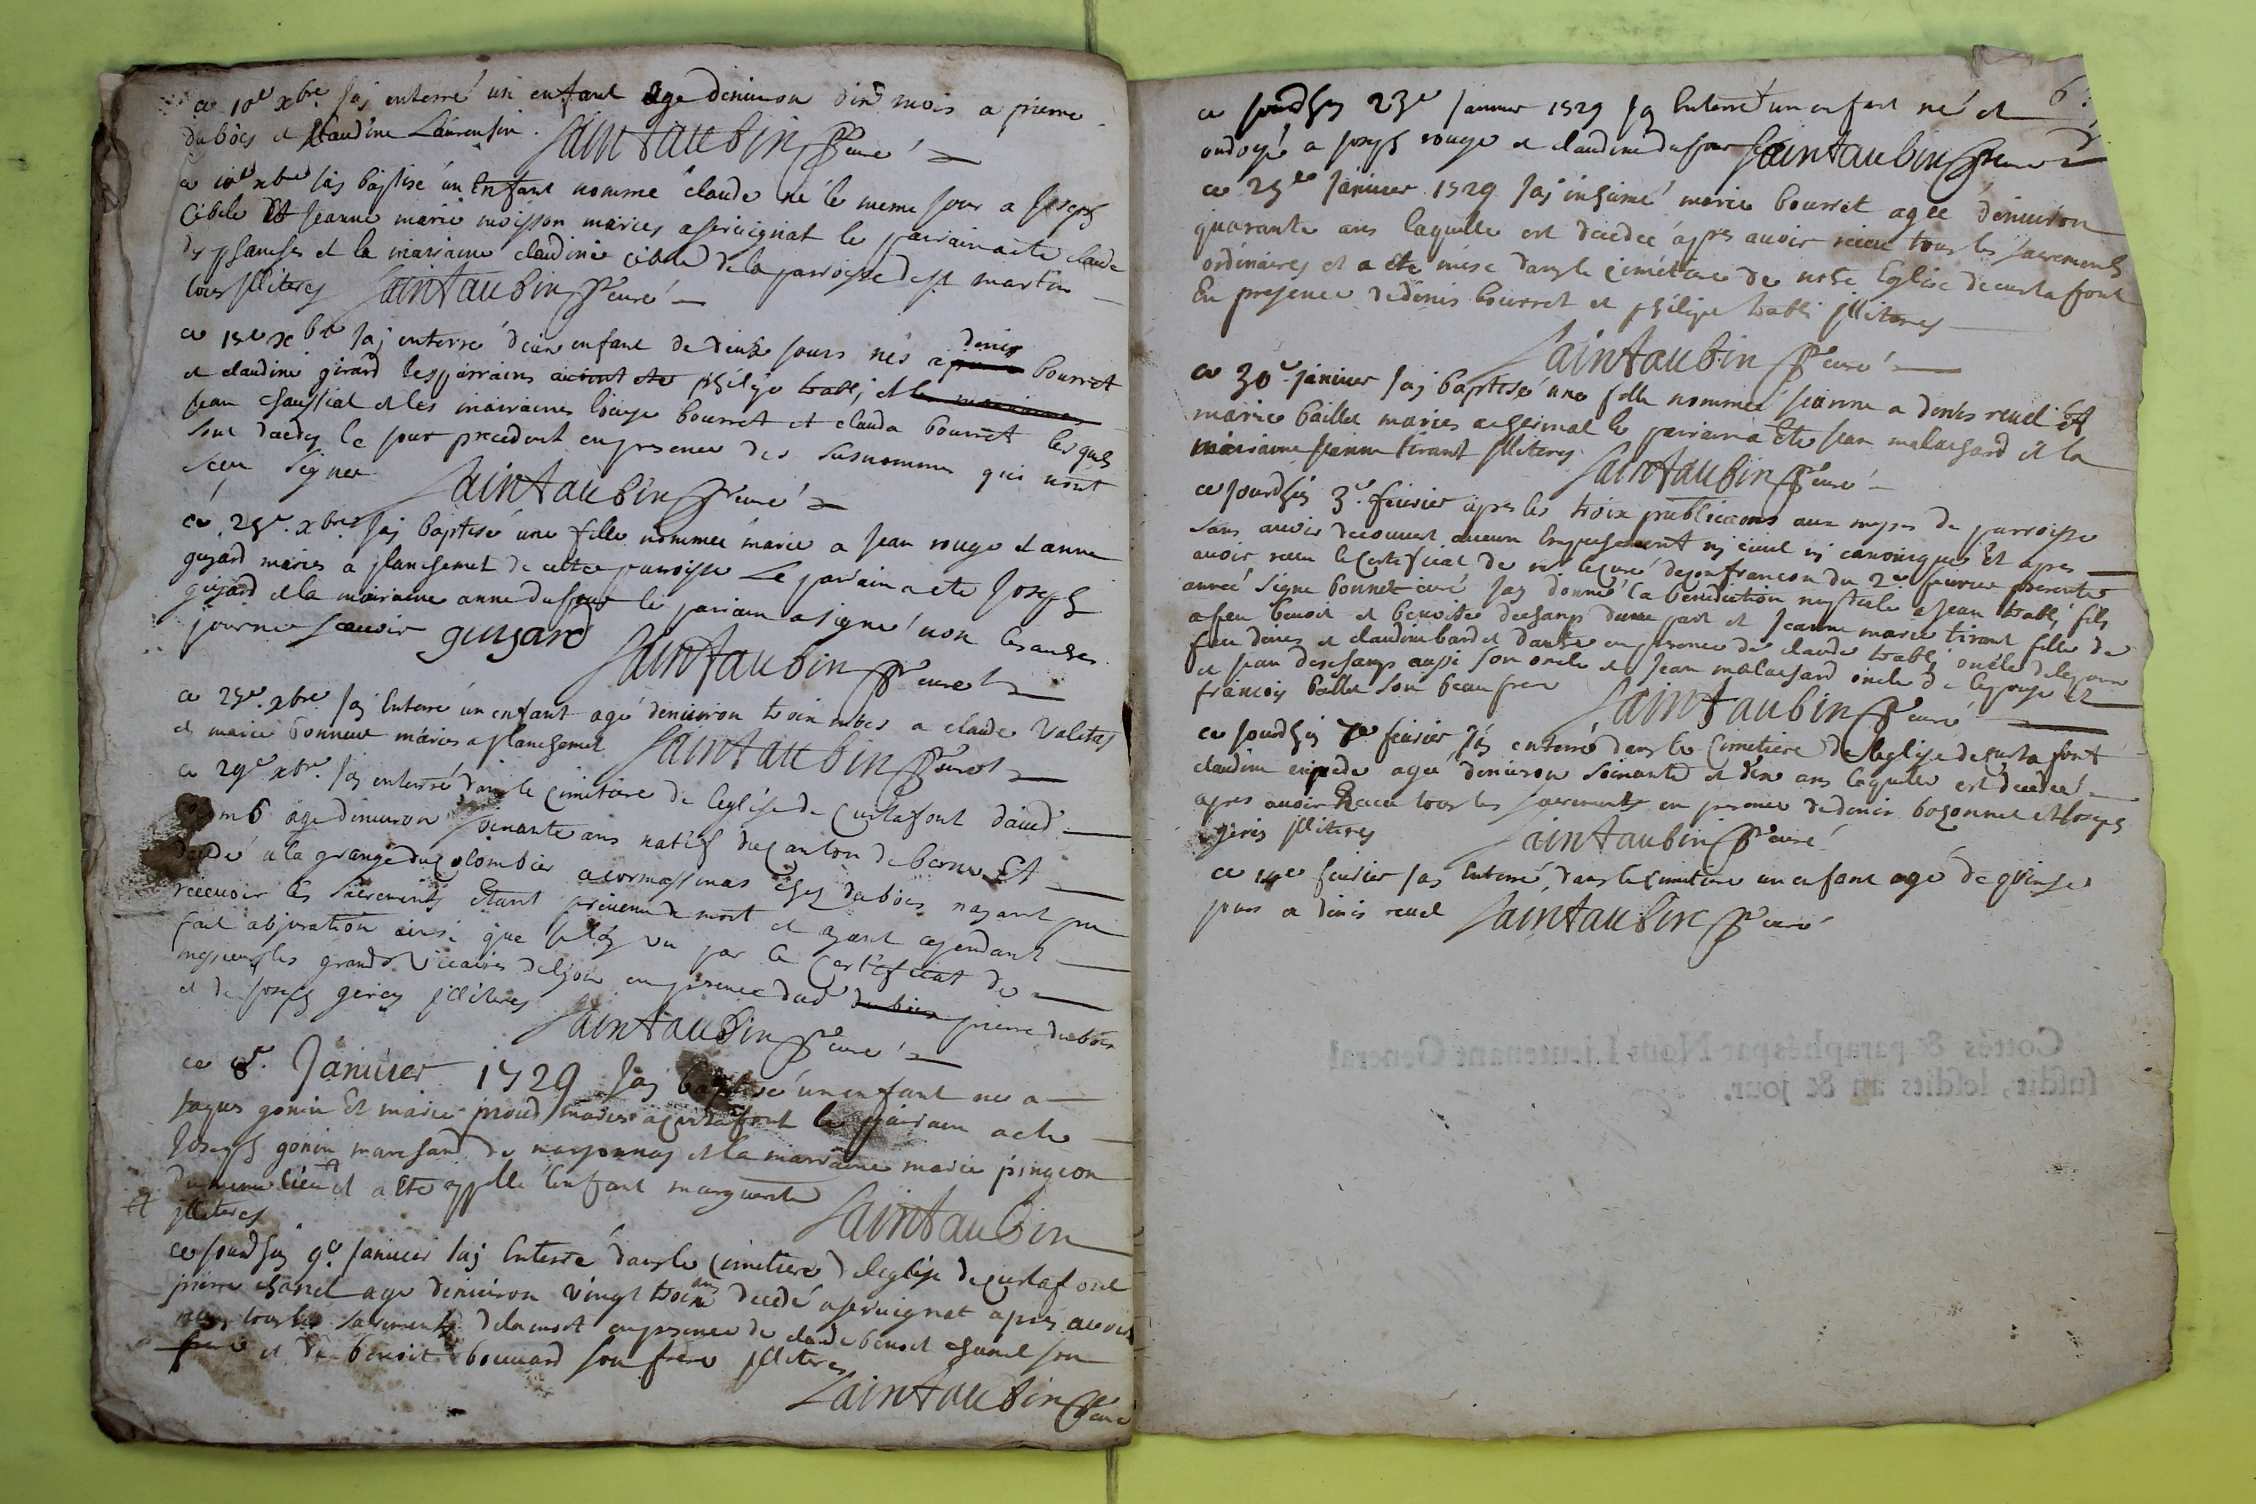 ce 10e xbre jaj enterré un enfant agé denuiron dix mois a pierre
dubois et Claudine Laurensin. Saintaubin curé
ce 10e xbre jaj baptisé un Enfant nommé claude né le meme jour a joseph
Cibele Et jeanne marie moisson maries a seruignat le parrain a ete claude
et la mairaine claudine cibele de la parroisse de st martin
tous jlliteres Saintaubin curé
ce 15e xbre jaj enterré deux enfant de deux jours nés a denis bourret
et claudine girard les parrains philipe trabli et
jean chaussiat et les mairaines bourret et clauda bourret lesquels
sont decedes le jour precedent en presence des susnommes qui nont
sceu signer Saintaubin curé
ce 25e xbre jaj baptisé une fille nommée marie a jean rouge et anne
guyard maries a planchemet de cette parroisse Le parrain a ete joseph
guyard et la mairaine anne dufour le parrain a signé non les autres
pour ne scauoir guyard Saintaubin curé
ce 25e xbre jaj Enterré un enfant agé denuiron trois mois a claude
et marie bonneue maries a planchemet Saintaubin curé
ce 29e xbre jaj enterré dans le cimetiere de leglise de Curtafont dauid
agé denuiron soixante ans natif du canton de berne Et
decedé a la grange du colombier a cormassinas chez dubois nayant pu
receuoir les sacrements etant preuenu de mort et ayant cependant
fait abjuration ainsi que je lay vu par le Certificat de
messieurs les grands Vicaires de Lyon en presence dud dubois pierre dubois
et de joseph gerey jlliteres Saintaubin curé
ce 8e. Januier 1729 jaj baptisé un enfant né a
jaques gonin Et marie proud maries a Curtafont le parrain a ete
Joseph gonin marchand de marsonnas et la marraine marie pingeon
du meme lieu et a ete appellé lenfant marguerite
Et jlliteres Saintaubin
ce jourdhuy 9e januier jaj Enterré dans le Cimetiere de leglise de curtafont
pierre chanel agé denuiron vingt trois ans decedé a seruignat apres auoir
receu tous les sacrements de la mort en presence de claude benoit chanel son
frere et de benoit bouuard son frere jlliteres
Saintaubin curé
6.
ce jourdhuy 23e januier 1729 jaj Enterré un enfant né et
ondoyé a joseph rouge et claudine dufour Saintaubin curé
ce 25e januier 1729 jaj inhumé marie bourret agée denuiron
quarante ans laquelle est decedée apres auoir receu tous les sacrements
ordinaires et a ete mise dans le cimetiere de notre Eglise de curtafont
En presence de denis bourret et philipe trabli jlliteres
Saintaubin curé
ce 30e januier jaj baptisé une fille nommée jeanne a denis reuel Et
marie baillet maries a chermat le parrain a Ete jean malachard et la
mairaine jeanne tirant jlliteres. Saintaubin curé
ce jourdhuy 3e. feurier apres les trois publications aux messes de parroisse
sans auoir decouuert aucun Empechement nj ciuil nj canonique Et apres
auoir receu le Certificat de mr le curé de confrancon du 2e feurier presente
année signé bonnet curé jaj donné la benediction nuptiale a jean trabli fils
a feu benoit et benoite dechamp dune part et jeanne marie tirant fille de
feu denis et claudine bardet dautre en presence de claude trabli oncle de lepoux
et jean deschamp aussi son oncle et jean malachard oncle de lepouse Et
francois baillet son beau frere Saintaubin curé
ce jourdhuy 7e feurier jaj enterré dans le Cimetiere de leglise de curtafont
claudine agée denuiron soixante et dix ans laquelle est decedée
apres auoir Receu tous les sacrements en presence de denis bozonnet et joseph
gerey jlliteres Saintaubin curé
ce 14e feurier jaj Enterré dans le cimetiere un enfant agé de quinze
jours a denis reuel Saintaubin curé
Cottés & paraphés par Nous Lieutenant General
susdit, lesdits an & jour.